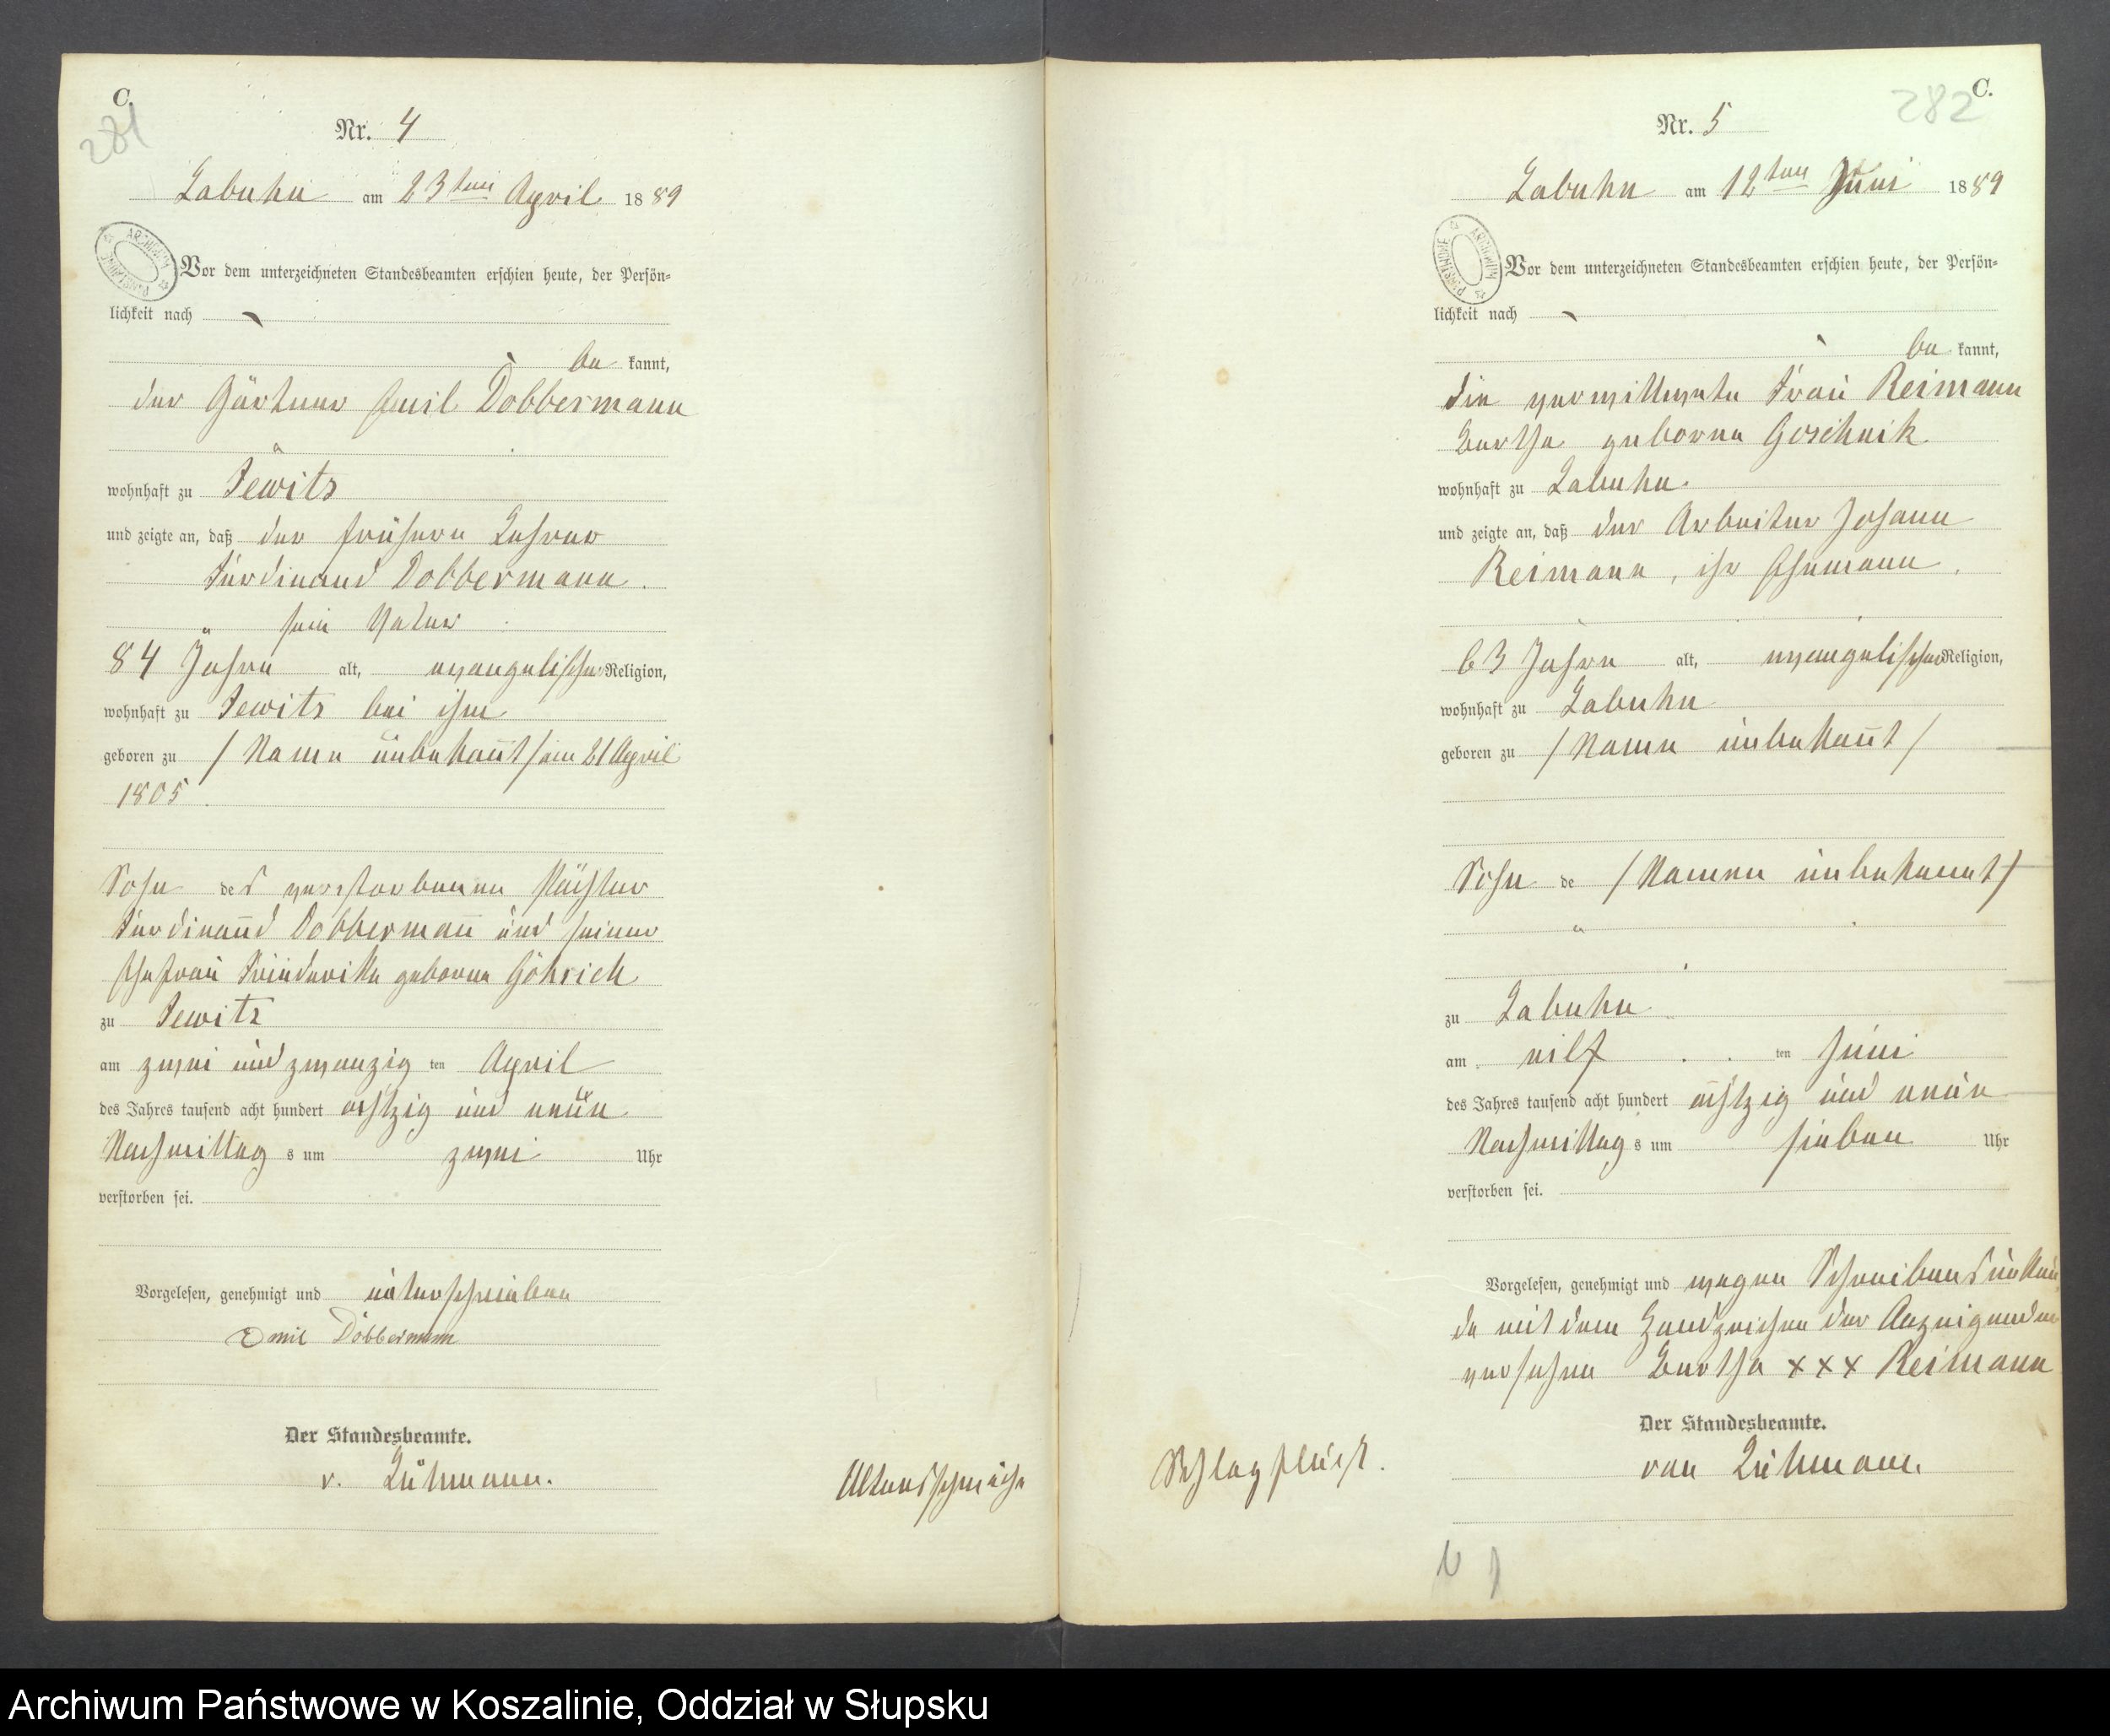 C.
281
Nr. 4
Labuhn am 23ten April 1889
ARCHIWUM PAŃSTWOWE
Vor dem unterzeichneten Standesbeamten erschien heute, der Persön-
lichkeit nach
be kannt,
der Gärtner Emil Dobbermann
wohnhaft zu Jewits
und zeigte an, daß der frühere Lehrer
Ferdinand Dobbermann
sein Vater
84 Jahre alt, evangelischer Religion,
wohnhaft zu Jewits bei ihm
geboren zu /Name unbekañt/ am 21 April
1805
Sohn des verstorbenen
Ferdinand Dobbermañ und seiner
Ehefrau Friederike geborne Göhrich
zu Jewitz
am zwei und zwanzig ten April
des Jahres tausend acht hundert achtzig und neun
Nachmittag s um zwei Uhr
verstorben sei.
Vorgelesen, genehmigt und unterschrieben
Emil Dobbermann
Der Standesbeamte.
v. Lühmann.
Altersschwäche
282
C.
Nr. 5
Labuhn am 12ten Juni 1889
ARCHIWUM PAŃSTWOWE
Vor dem unterzeichneten Standesbeamten erschien heute, der Persön-
lichkeit nach
be kannt,
die verwittwete Frau Reimann
Bertha geborne Goschnik
wohnhaft zu Labuhn.
und zeigte an, daß der Arbeiter Johann
Reimann, ihr Ehemann,
63 Jahre alt, evangelischer Religion,
wohnhaft zu Labuhn
geboren zu /Name unbekañt/
Sohn de /Namen unbekannt/
zu Labuhn
am eilf ten Juni
des Jahres tausend acht hundert achtzig und neun
Nachmittag s um sieben Uhr
verstorben sei.
Vorgelesen, genehmigt und wegen Schreibensunkun
de mit dem Handzeichen der Anzeigenden
versehen Bertha xxx Reimann
Der Standesbeamte.
von Lühmann.
Schlagfluß.
Archiwum Państwowe w Koszalinie, Oddział w Słupsku